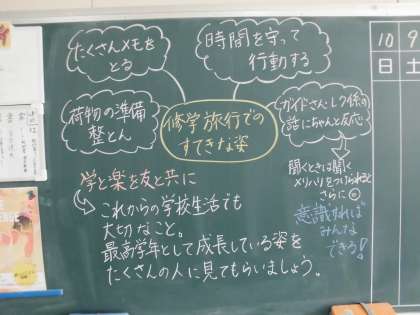 たくさんメモを
とる
時間を守って
行動する
荷物の準備
整とん
修学旅行での
すてきな姿
ガイドさん・レク係の
話にちゃんと反応
聞くときは聞く
メリハリをつけられると
さらに
学と楽を友と共に
これからの学校生活でも
大切なこと。
最高学年として成長している姿を
たくさんの人に見てもらいましょう。
意識すれば
みんな
できる!
10 9
日 土